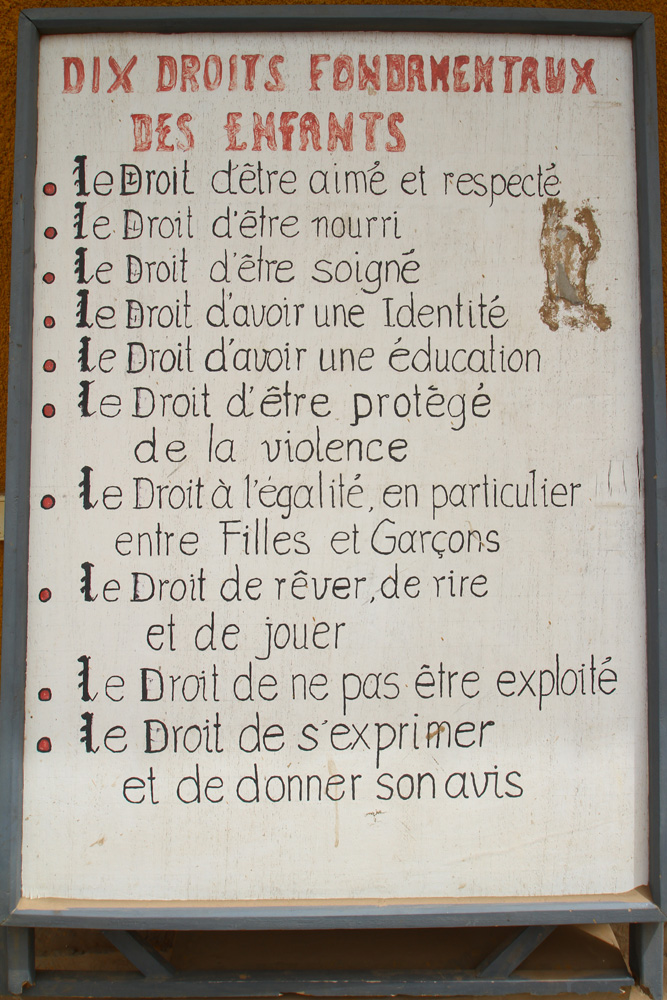 DIX DROITS FONDAMENTAUX
DES ENFANTS
• Le Droit d'être aimé et respecté
• Le Droit d'être nourri
• Le Droit d'être soigné
• Le Droit d'avoir une Identité
• Le Droit d'avoir une éducation
• Le Droit d'être protégé
de la violence
• Le Droit à l'égalité, en particulier
entre Filles et Garçons
• Le Droit de rêver, de rire
et de jouer
• Le Droit de ne pas être exploité
• Le Droit de s'exprimer
et de donner son avis